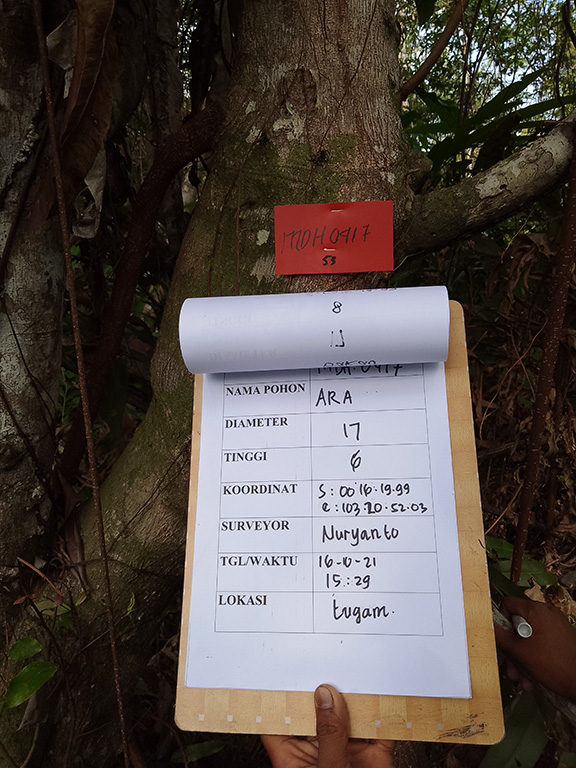 MDH 0417
53
8
NAMA POHON ARA
DIAMETER 17
TINGGI 6
KOORDINAT S : 00 16 . 19 . 99
e : 103 . 20 . 52 . 03
SURVEYOR Nuryanto
TGL/WAKTU 16-10-21
15 : 29
LOKASI tugam.